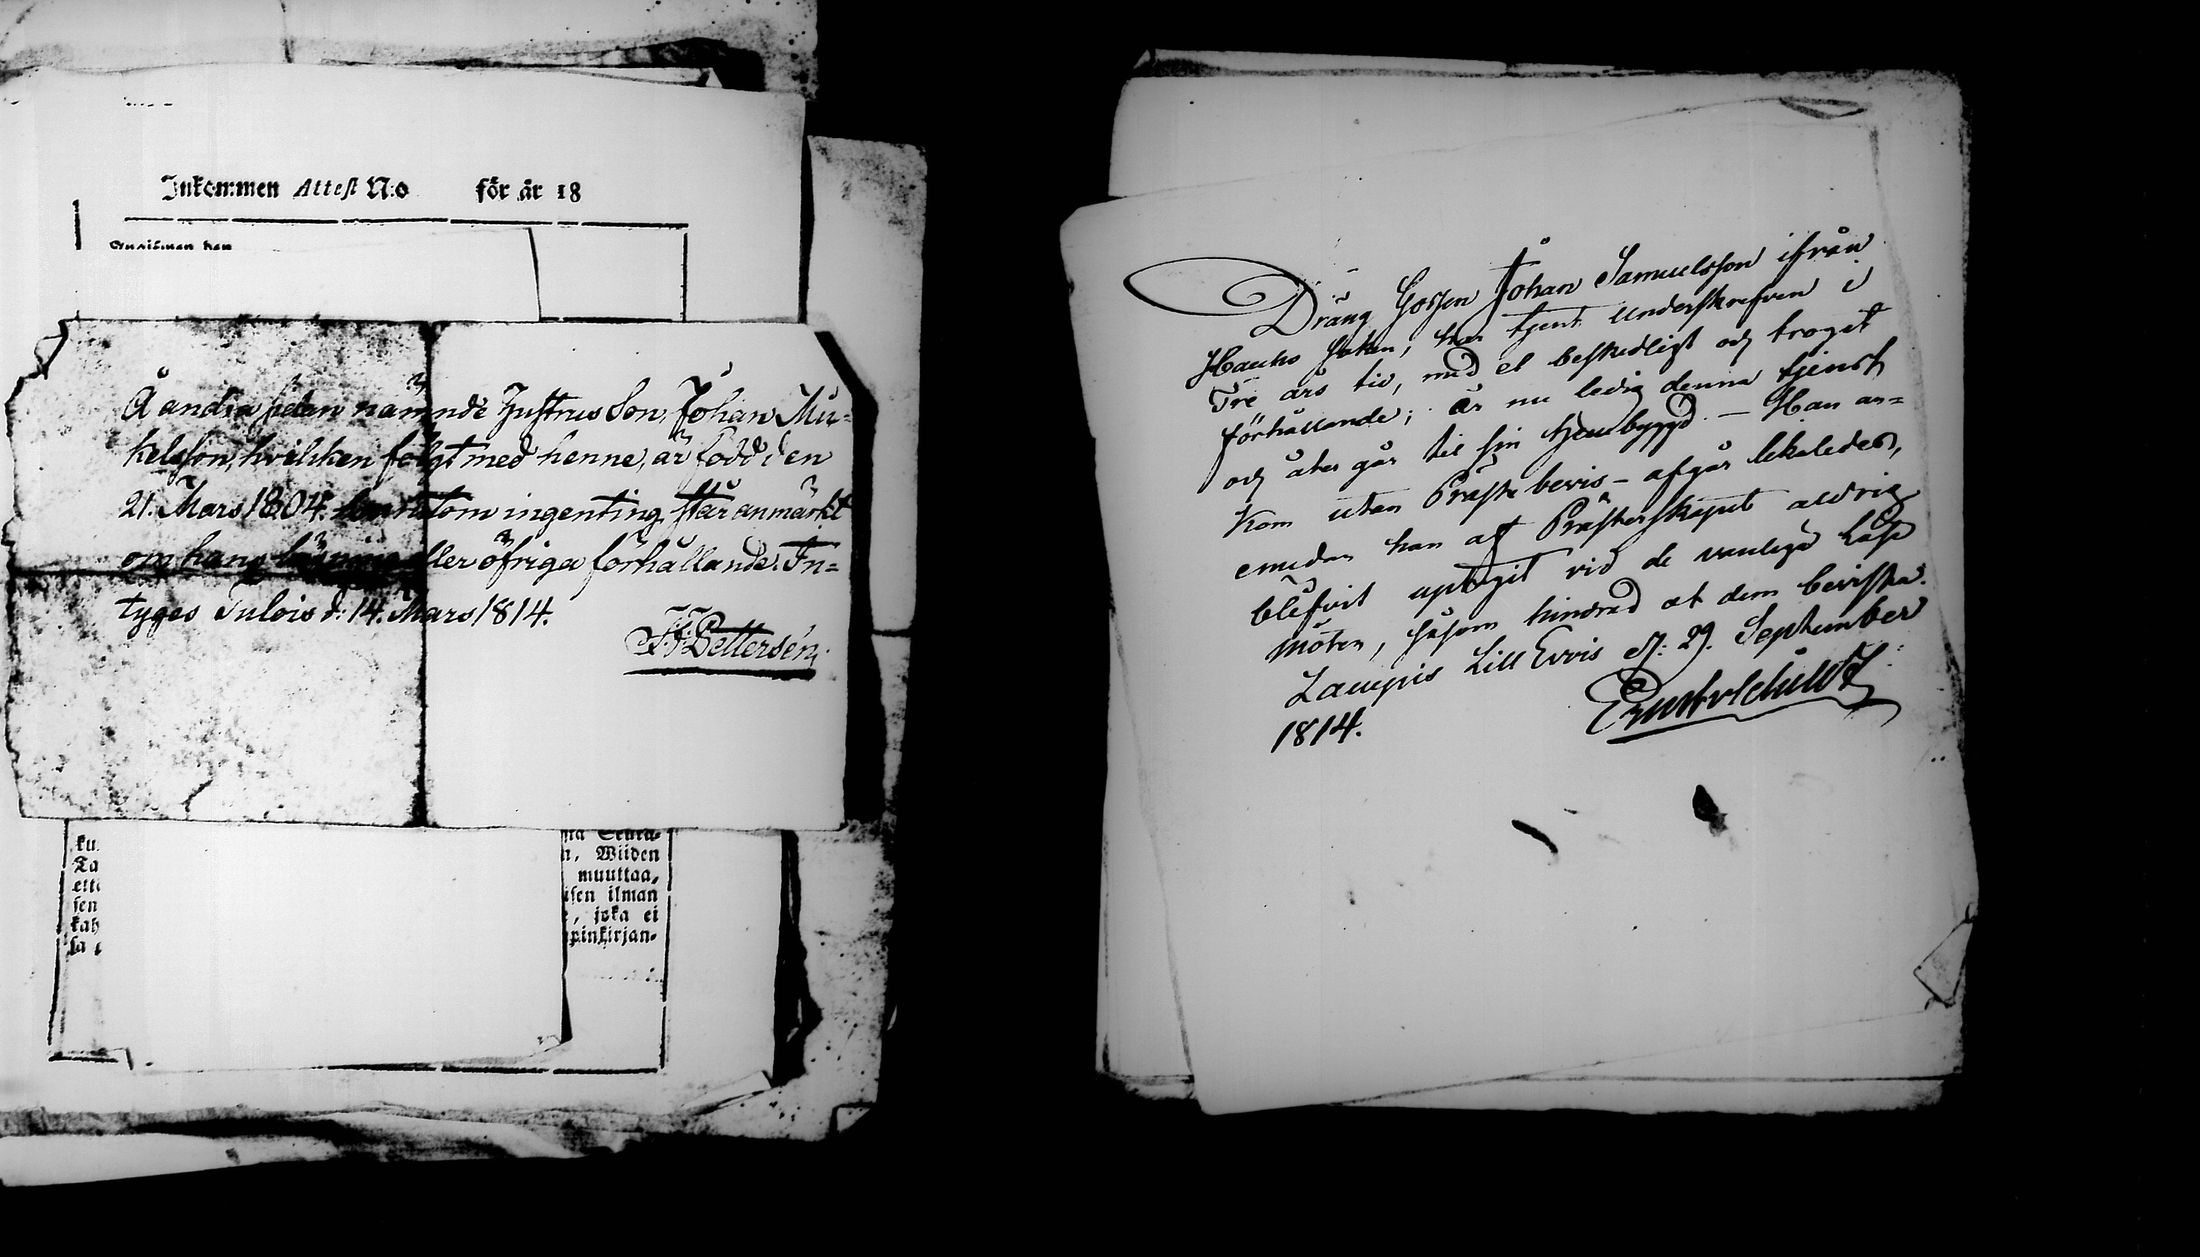 Inkommen Attest N:o för år 18
Å andra sidan nämnde Hustrus Son, Johan Mi-
kelsson, hvilken följt med henne, är född den
21. Mars 1804. utom ingenting står anmärkt
om hans läsning eller öfriga förhållande. In-
tyges Tulois d: 14. Mars 1814.
ku
Ta
ette
sen
kah
sa
n, Wiiden
muuttaa,
isen ilman
, joka ei
pinkirjan-
Dräng Gossen Johan Samuelsson ifrån
Hauho Soken, har tjent Underskrefven i
Tre års tid, med et beskedligt och troget
förhållande; är nu ledig denna tjenst
och åter går til sin hembygd. — Han an-
kom utan Präste bevis – afgår likaledes,
emedan han af Prästerskapet aldrig
blefvit uptagit vid de vanliga Läse
möten, såsom hindrad at dem bevista.
Lampis Lill Evvis d: 29. September
1814.